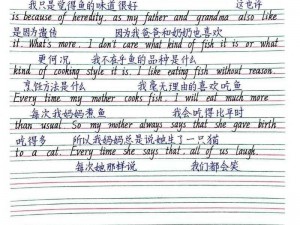 我只是觉得鱼的味道很好 这也许
is because of heredity, as my father and grandma also like
是因为遗传 因为我爸爸和奶奶也喜欢
it. What's more. I don't care what kind of fish it is or what
更何况 我不在乎鱼的品种是什么
kind of cooking style it is. I like eating fish without reason.
烹饪方法是什么 我毫无理由的喜欢吃鱼
Every time my mother cooks fish. I will eat much more
每次我妈妈煮鱼 我会吃得比平时
than usual. So my mother always says that she gave birth
吃得多 所以我妈妈总是说她生了一只猫
to a cat. Every time she says that, all of us laugh.
每次她那样说 我们都会笑